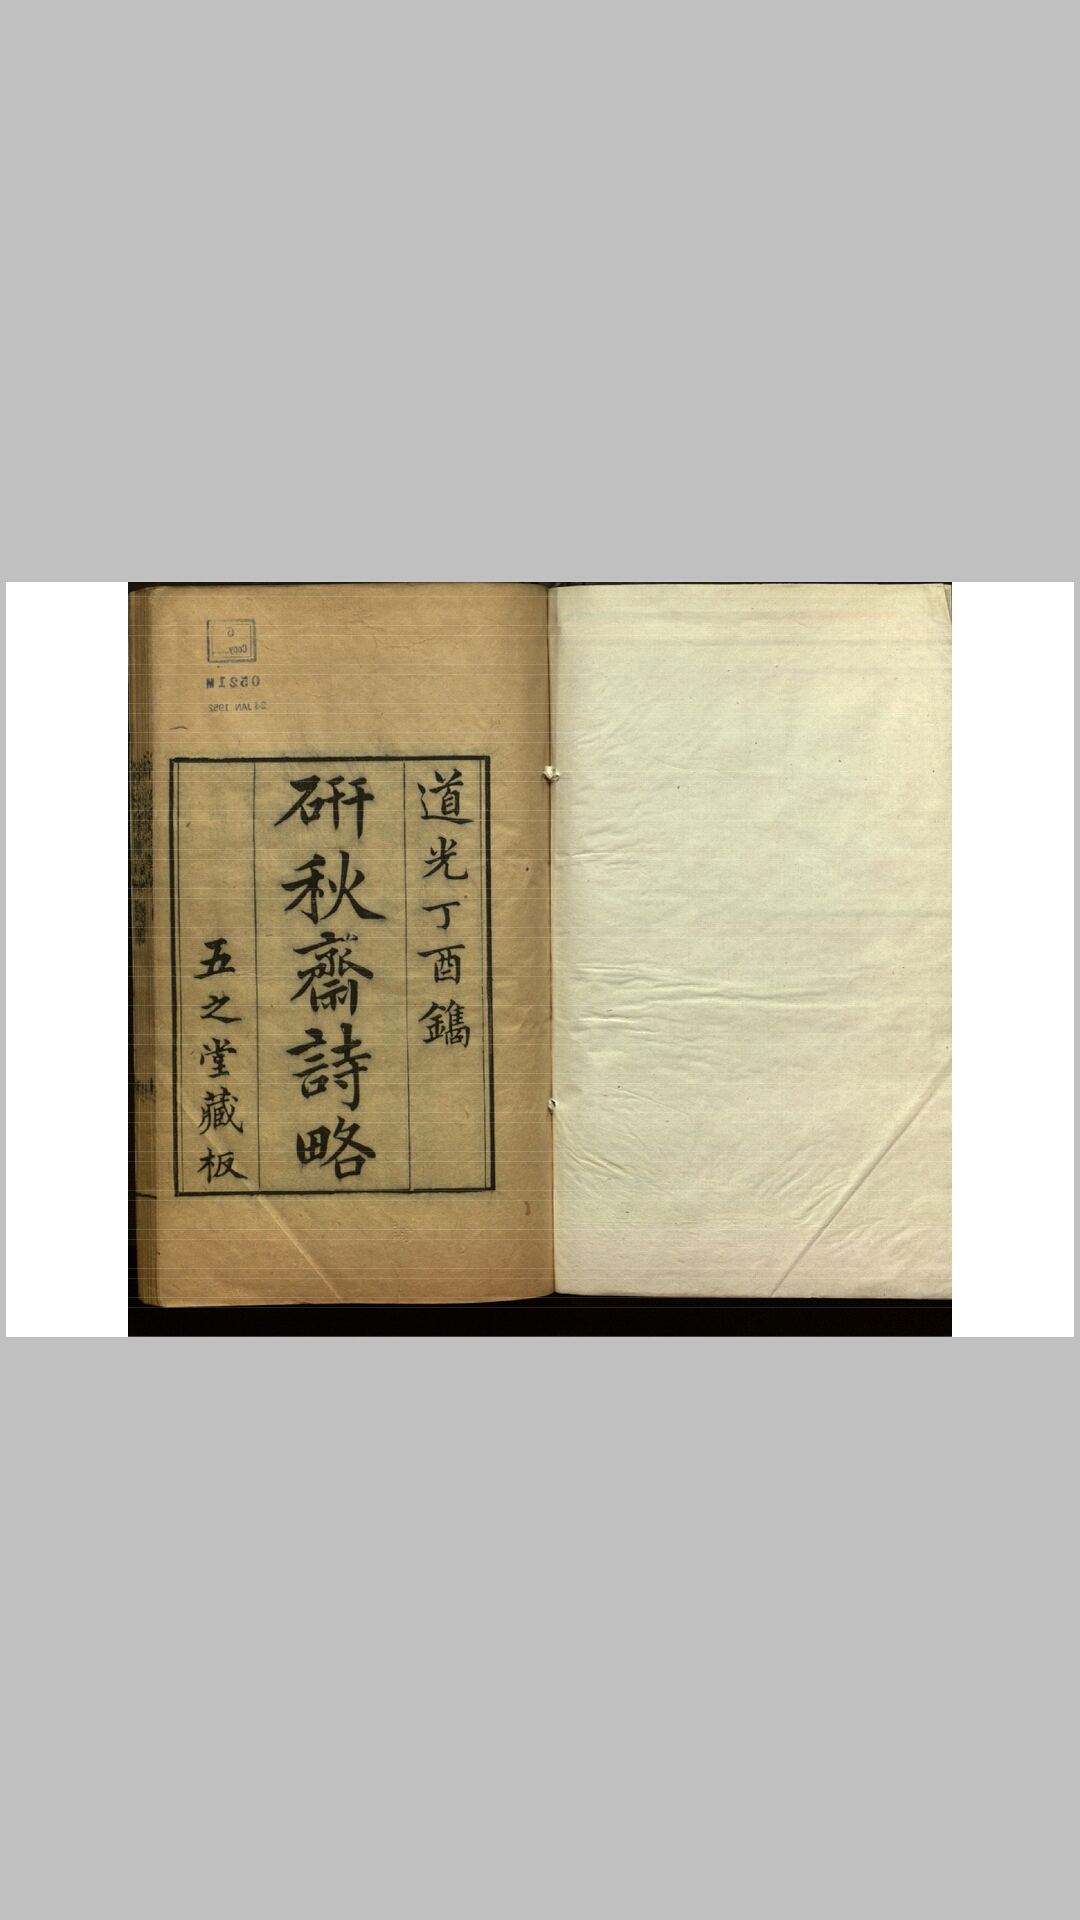 道光丁酉鐫
硏秋齋詩略
五之堂藏板
6
Copy
0521M
24 JAN 1952